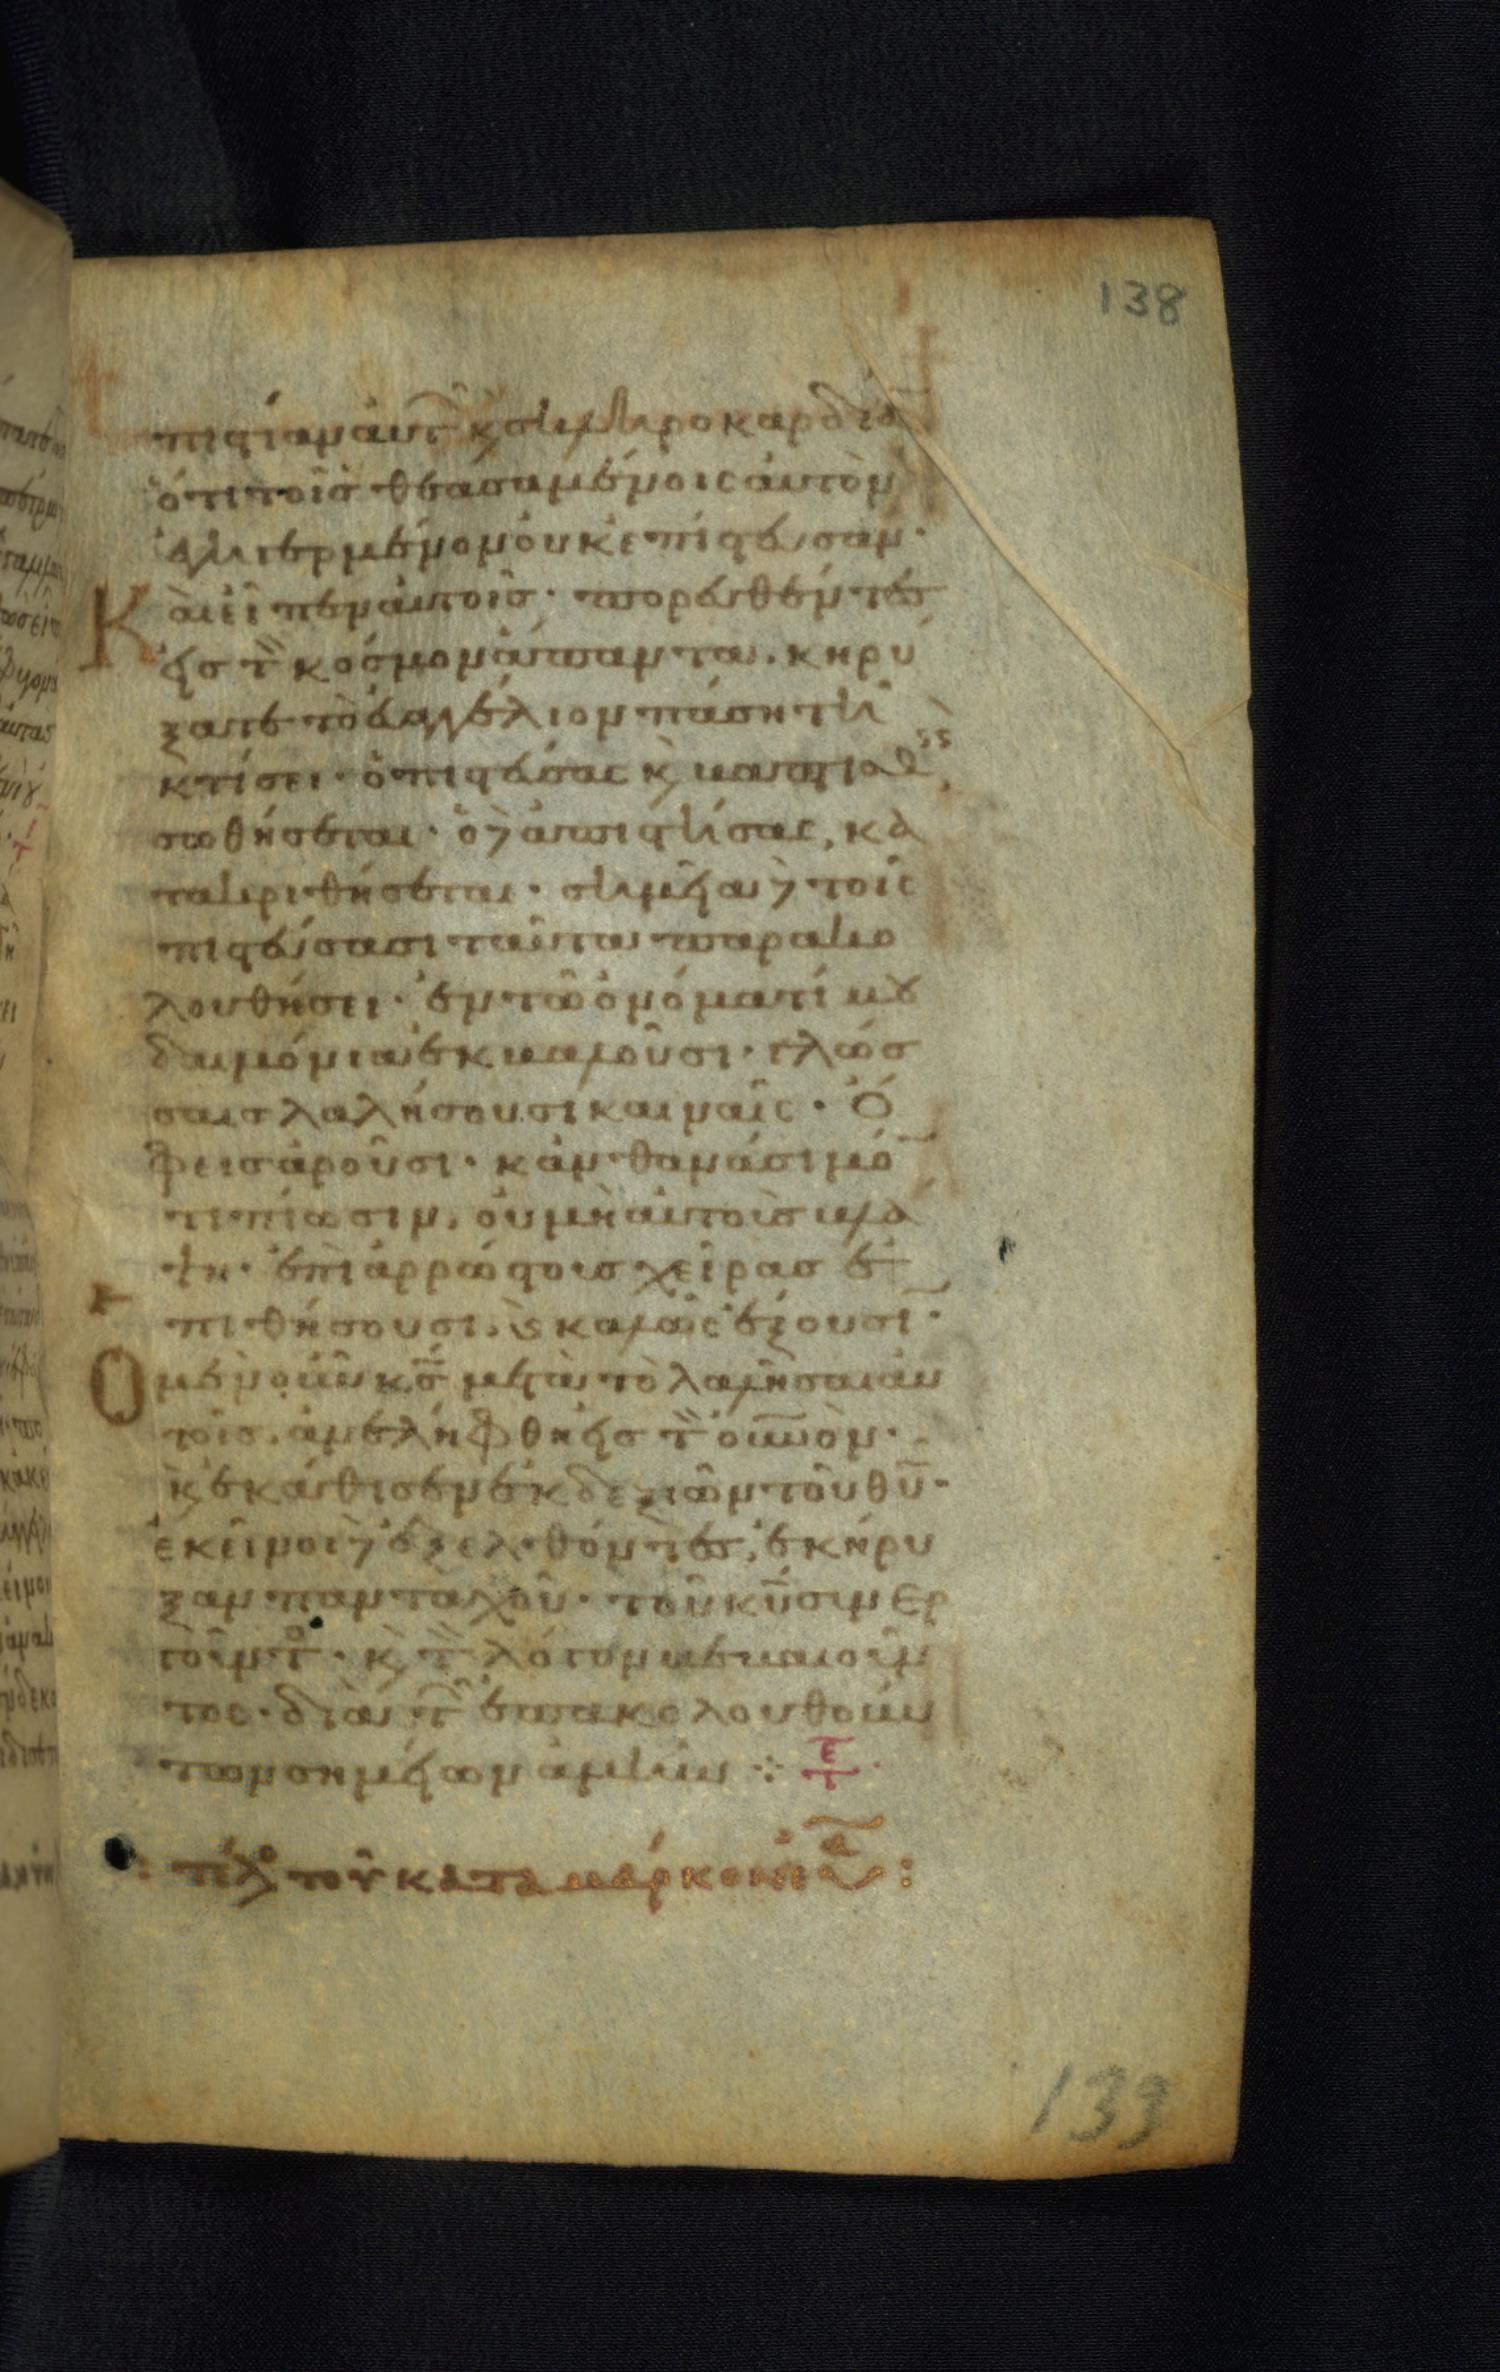 138
πιστίαν αὐτ̑ κ̀ σκληροκαρδία
ὅτι τοῖς θεασαμένοις αὐτὸν
ἐγηγερμένον οὐκ ἐπίστευσαν·
Καὶ εἶπεν αὐτοῖς· πορευθέντες
εἰς τ̏ κόσμον ἅπαντα, κηρύ
ξατε τὸ εὐαγγέλιον πάση τῆ
κτίσει· ὁ πιστεύσας κ̀ βαπτισθεὶς,
σωθήσεται· ὁ δ̀ ἀπιστήσας, κα
τακριθήσεται· σημεῖα δ̀ τοῖς
πιστεύσασι ταῦτα παρακο
λουθήσει· ἐν τῶ ὀνόματί μου
δαιμόνια ἐκβαλοῦσι· γλώσ
σαις λαλήσουσι καιναῖς· ὄ
φεις ἀροῦσι· κἂν θανάσιμό̄
τι πίωσιν, οὐ μὴ αὐτοὺς βλά
ψη· ἐπὶ ἀρρώστους χεῖρας ἐ
πιθήσουσι, κ̀ καλῶς ἕξουσῑ·
Ὁ μὲν οὖν κ̅ς̅ μετὰ τὸ λαλῆσαι αὐ
τοῖς, ἀνελήφθη εἰς τ̏ οὐ̅νὸν·
κ̀ ἐκάθισεν ἐκ δεξιῶν τοῦ θ̅υ̅·
ἐκεῖνοι δ̀ ἐξελθόντες, ἐκήρυ
ξαν πανταχοῦ· τοῦ κ̅υ̅ συνερ
γοῦντο̑· κ̀ τ̏ λόγον βεβαιοῦν
τος· διὰ τ̑ ἐπακολουθούν
των σημείων ἀμήν ⁘ τε
: τέλο τοῦ κατὰ μάρκον εὐα :
139